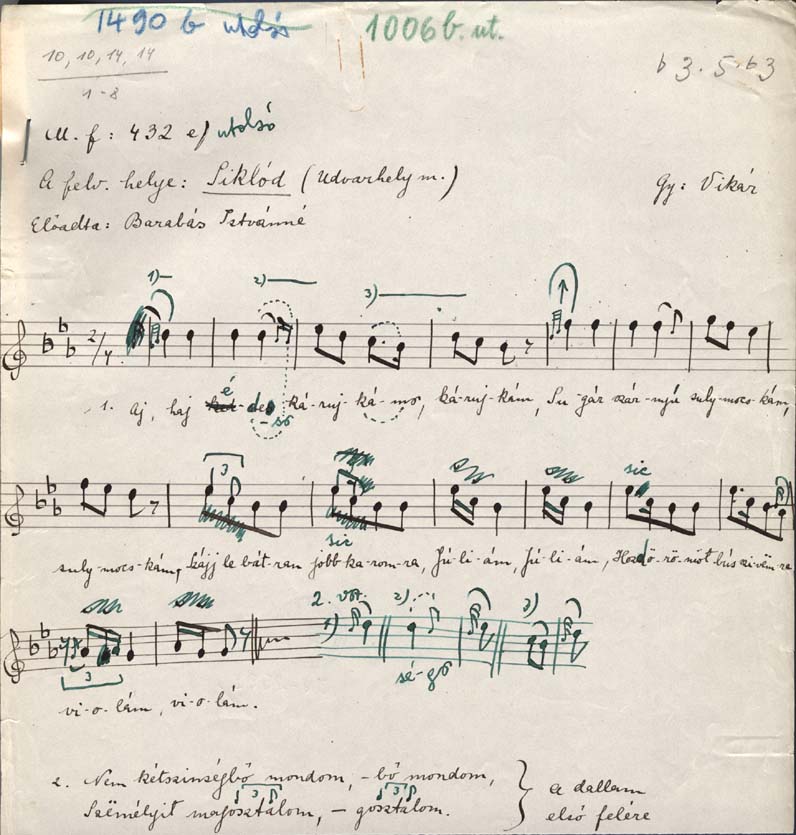 1490 b utolsó 1006 b. ut.
10, 10, 14, 14
1-8
b 3 . 5 . b 3
M. f: 432 e/ utolsó
A felv. helye: Siklód (Udvarhely m.) Gy: Vikár
Előadta: Barabás Istvánné
1) 2) 3)
2/4
1. Aj, haj édes ká-ruj-ká-mo, ká-ruj-kám, Su-gár szár-nyú suly-mocs-kám,
-so
3
sic
sic
suly-mocs-kám, szájj le bát-ran jobb ka-rom-ra, Jú-li-ám, Jú-li-ám, Hozd ö-rö-möt bús szi-vëm-re
2. vsz. 1) 2) 3)
sé-gő
3
vi-o-lám, vi-o-lám.
2. Nem kétszinségbő mondom, -bő mondom,
3 3
Szëmélyit magosztalom, - gosztalom.
a dallam
első felére